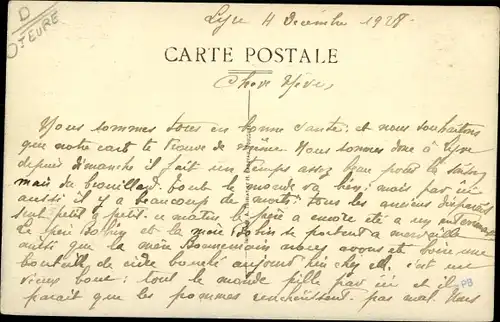 D
OTEURE
Lyre 4 Décembre 1928
CARTE POSTALE
Chère Mère,
Nous sommes tous en bonne santé, et nous souhaitons
que notre carte te trouve de même. Nous sommes donc à Lyre
depuis dimanche il fait un temps assez beau pour la saison
mais du brouillard. tout le monde va bien; mais par ici
aussi il y a beaucoup de morts tous les anciens disparaissent
petit à petit. ce matin le père a encore été à un enterrement
Le père et la mère se portent à merveille
ainsi que la mère nous avons été boire une
bouteille de cidre bouché aujourd'hui chez elle, c'est une
vieux bonne: tout le monde pille par ici et il
parait que les pommes renchérissent. pas mal. Nous
PB